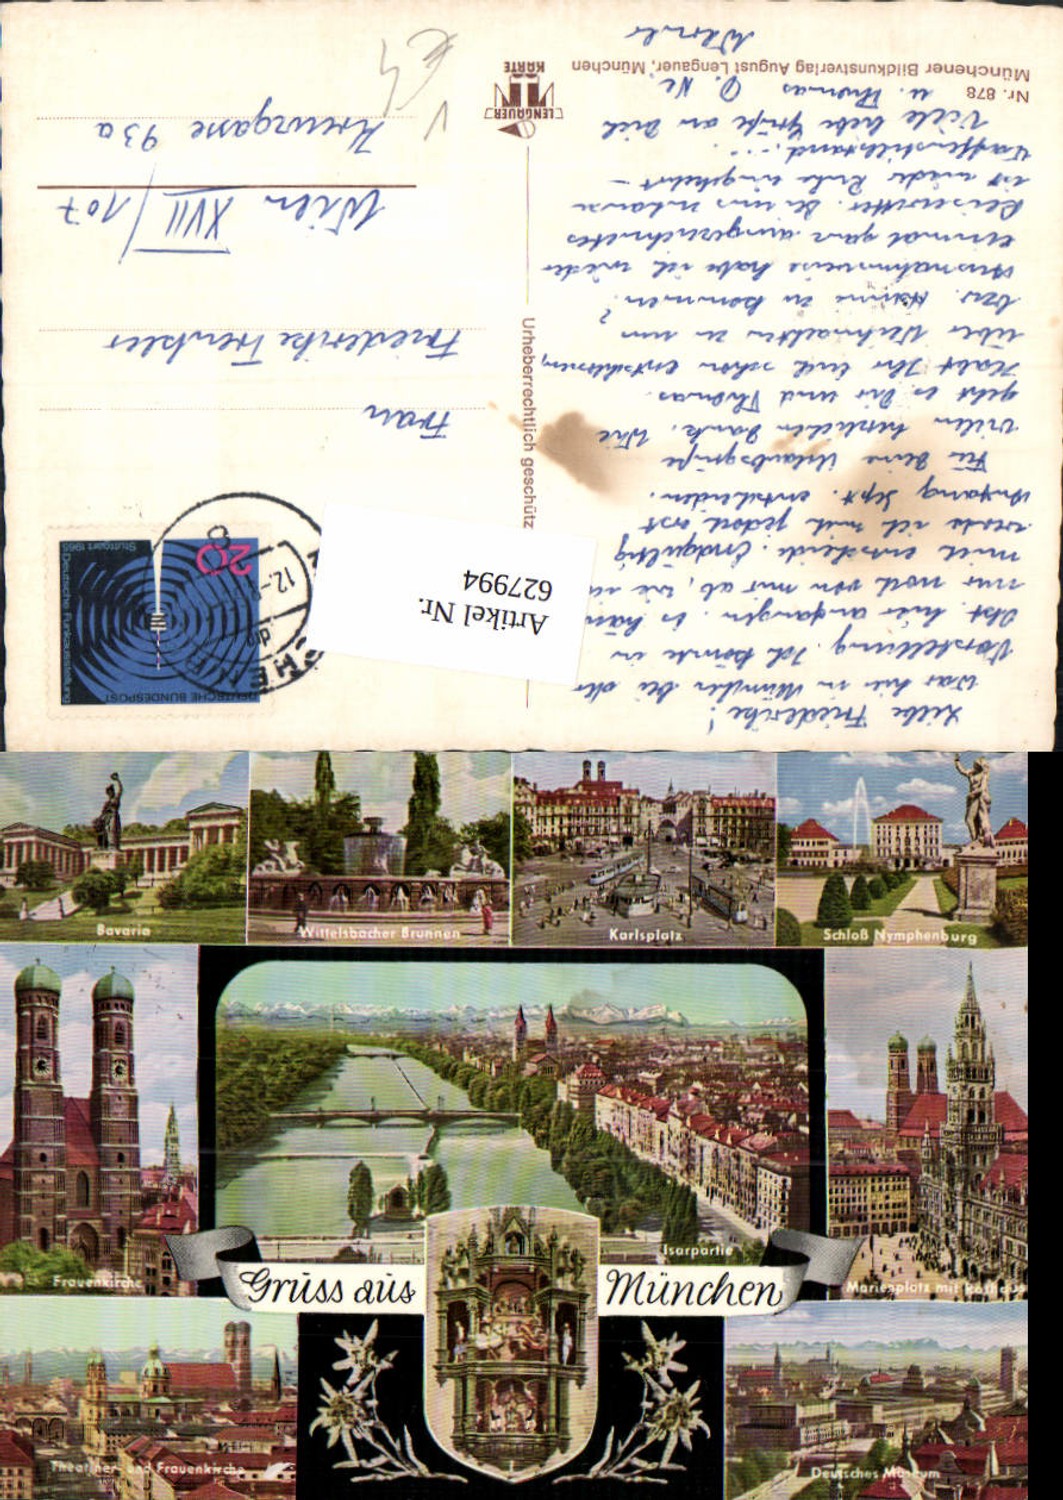 Liebe Friederike!
War hier in München bei der
Vorstellung. Ich könnte in
Okt. hier anfangen. Es hän
nur noch von mir ab, wie
mich entscheide. Endgültig
werde ich mich jedoch erst
Anfang Sept. entscheiden.
Für Deine Urlaubsgrüße
vielen herzlichen Dank. Wie
geht es Dir und Thomas.
Habt Ihr Euch schon entschlossen,
über Weihnachten zu uns
bzw. Hanni zu kommen?
Ausnahmsweise habe ich wieder
einmal ganz ausgezeichnetes
Reisewetter. Bei uns zuhause
ist wieder Ruhe eingekehrt –
Waffenstillstand....
Viele liebe Grüße an Dich
u. Thomas
Werner
Nr. 878
Münchener Bildkunstverlag August Lengauer, München
LENGAUER
KARTE
Urheberrechtlich geschütz
20
DEUTSCHE BUNDESPOST
Deutsche Funkausstellung
Stuttgart 1965
12.-8
Artikel Nr.
627994
Frau
Friederike Trenkler
Wien XVII/107
93a
Bavaria
Wittelsbacher Brunnen
Karlsplatz
Schloß Nymphenburg
Frauenkirche
Isarpartie
Marienplatz mit Rathaus
Gruss aus München
Theatiner- und Frauenkirche
Deutsches Museum